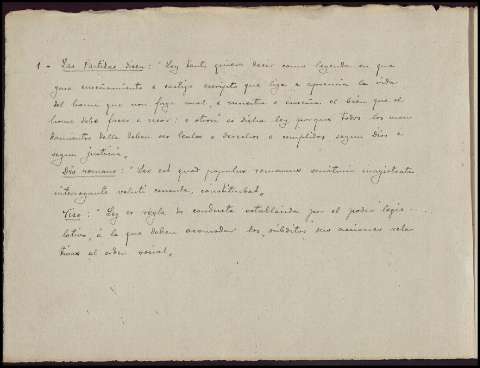 1 - Las Partidas dicen: "Ley tanto quiere decir como leyenda en que
yace enseñamiento e castigo escripto que liga e apremia la vida
del home que non faga mal, e muestra e enseña el bien que el
home debe facer e usar: e otrosí es dicha ley porque todos los man
damientos della deben ser leales e derechos e complidos segun Dios e
segun justicia."
Dro romano: "Lex est quod populus romanus senatorio magistratu
interrogante veluti consule, constituebat."
Viso: "Ley es regla de conducta establecida por el poder legis-
lativo, á la que deben acomodar los súbditos sus acciones rela
tivas al orden social."